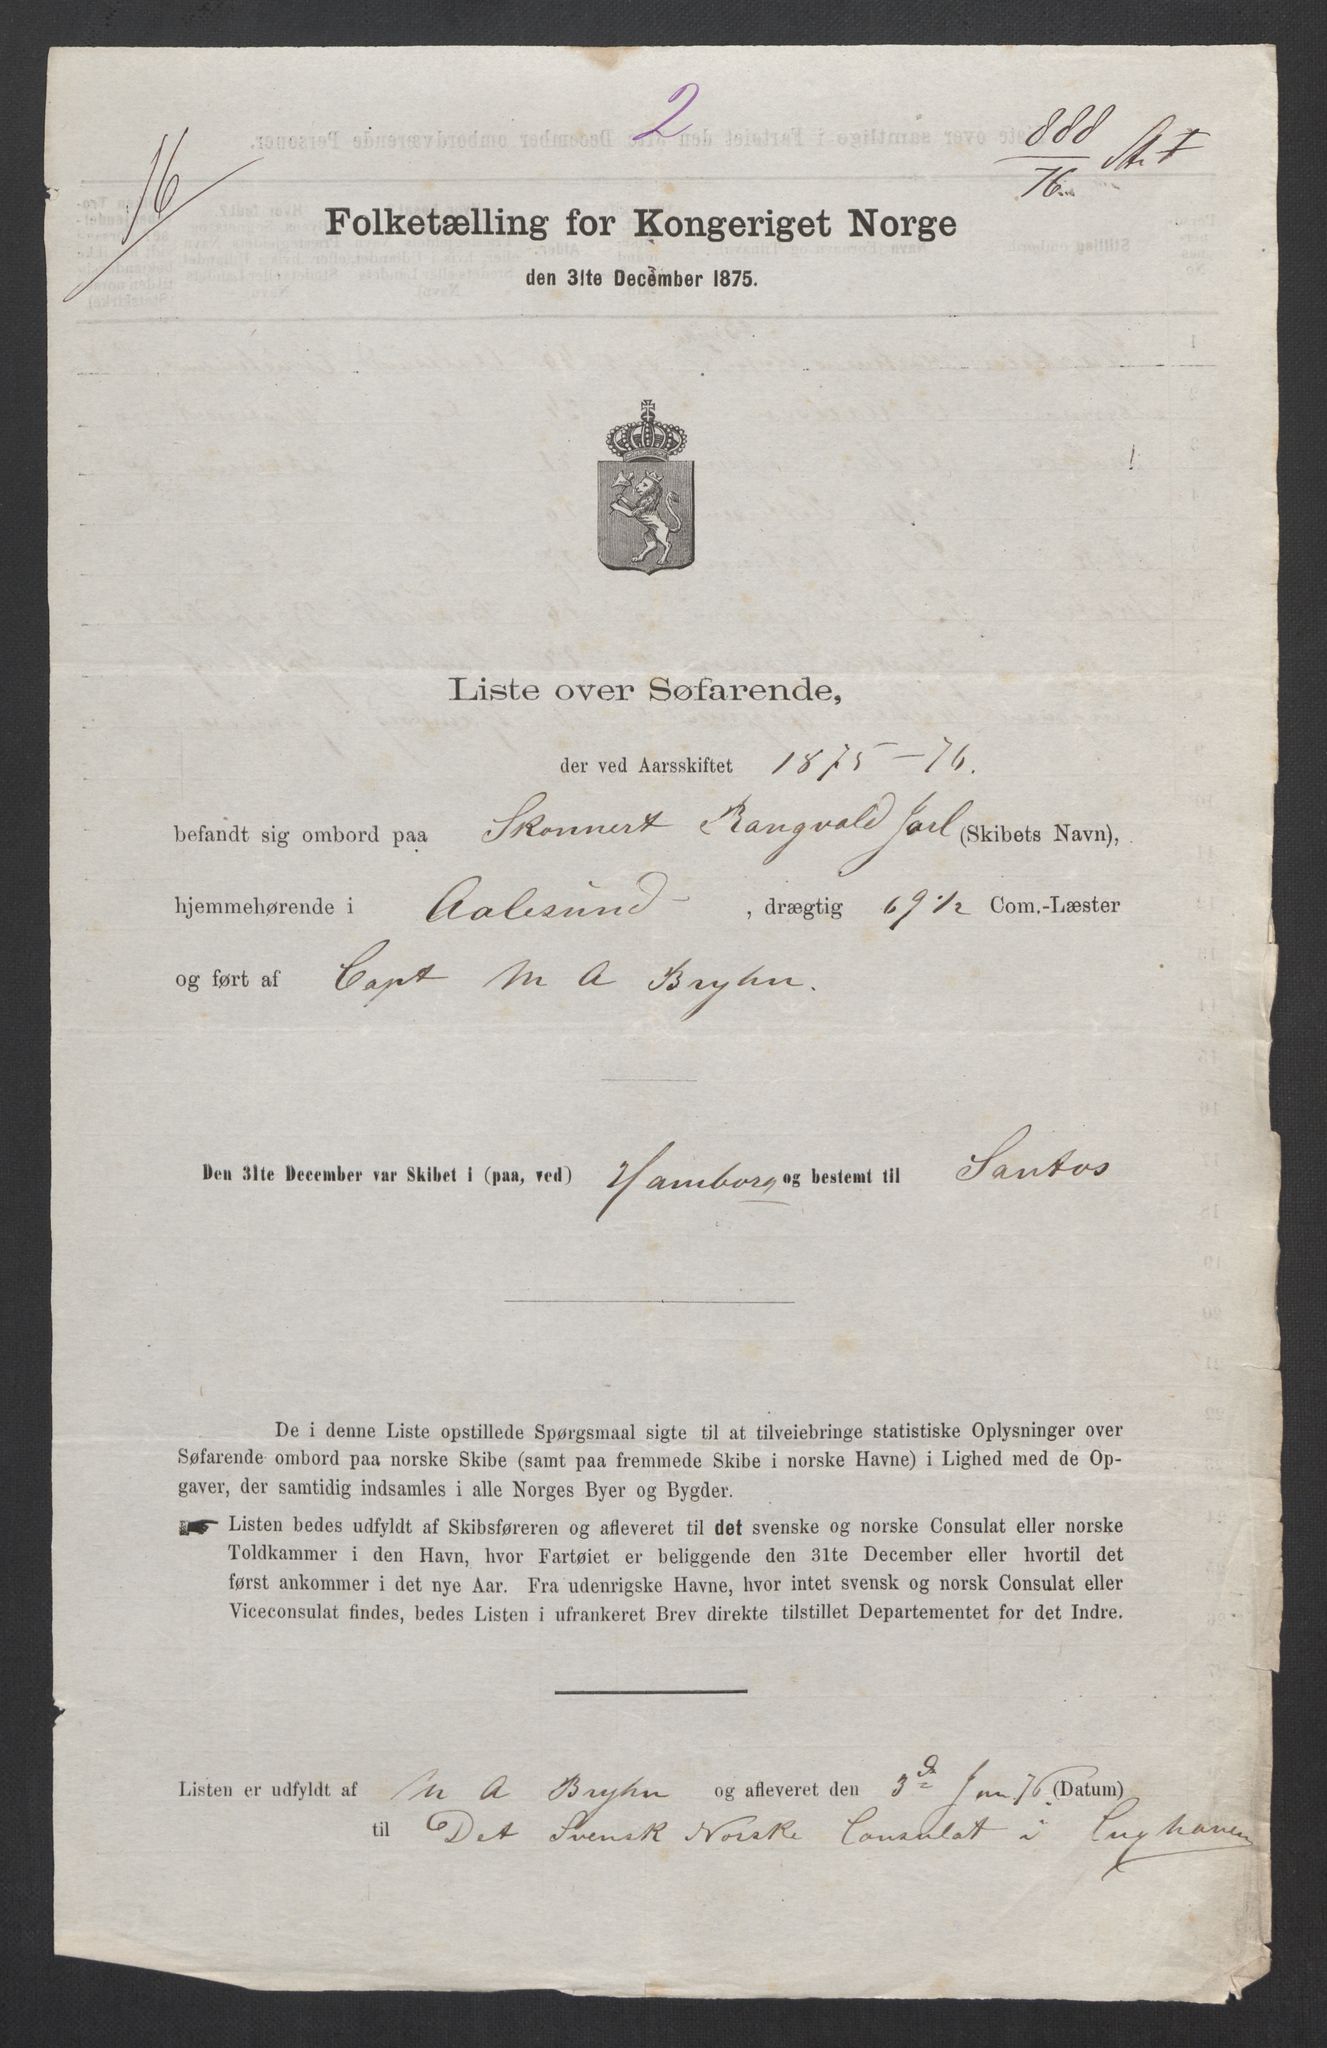 2
888
76
16
Folketælling for Kongeriget Norge
den 31te December 1875.
Liste over Søfarende,
der ved Aarsskiftet 1875-76.
befandt sig ombord paa Skonnert Rangvald Jarl (Skibets Navn),
hjemmehørende i Aalesund, drægtig 69 1/2 Com.-Læster
og ført af Capt M A Bryhn.
Den 31te December var Skibet i (paa, ved) Hamborg og bestemt til Santos
De i denne Liste opstillede Spørgsmaal sigte til at tilveiebringe statistiske Oplysninger over
Søfarende ombord paa norske Skibe (samt paa fremmede Skibe i norske Havne) i Lighed med de Op-
gaver, der samtidig indsamles i alle Norges Byer og Bygder.
Listen bedes udfyldt af Skibsføreren og afleveret til det svenske og norske Consulat eller norske
Toldkammer i den Havn, hvor Fartøiet er beliggende den 31te December eller hvortil det
først ankommer i det nye Aar. Fra udenrigske Havne, hvor intet svensk og norsk Consulat eller
Viceconsulat findes, bedes Listen i ufrankeret Brev direkte tilstillet Departementet for det Indre.
Listen er udfyldt af M A Bryhn og afleveret den 3 Jan 76 (Datum)
til Det Svensk Norske Consulat i Cuxhaven